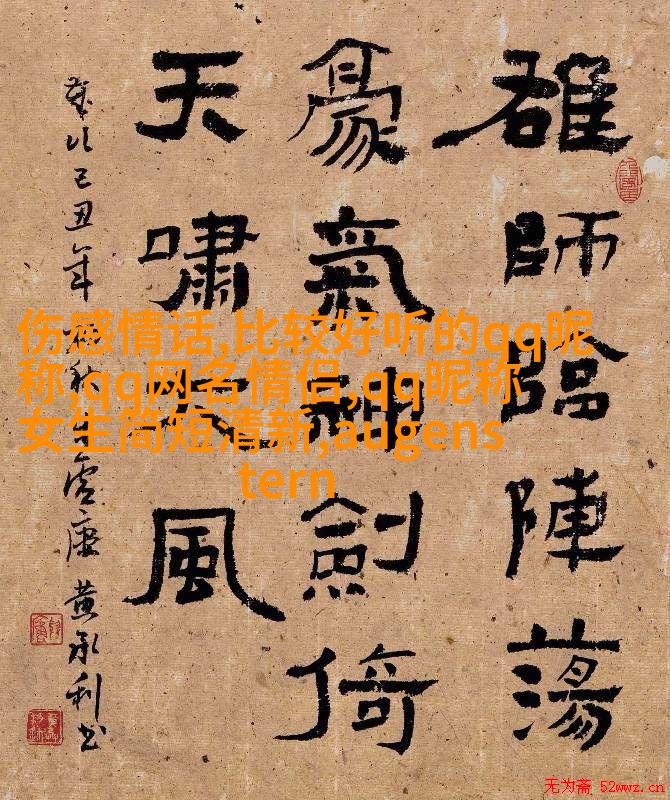 雄師臨陣蕩
豪氣神劍倚
天嘯風
歲次己丑年秋黃承利书
伤感情话,比较好听的qq昵
称,qq网名情侣,qq昵称
女生简短清新,augens
tern
无为斋 52wwz.cn